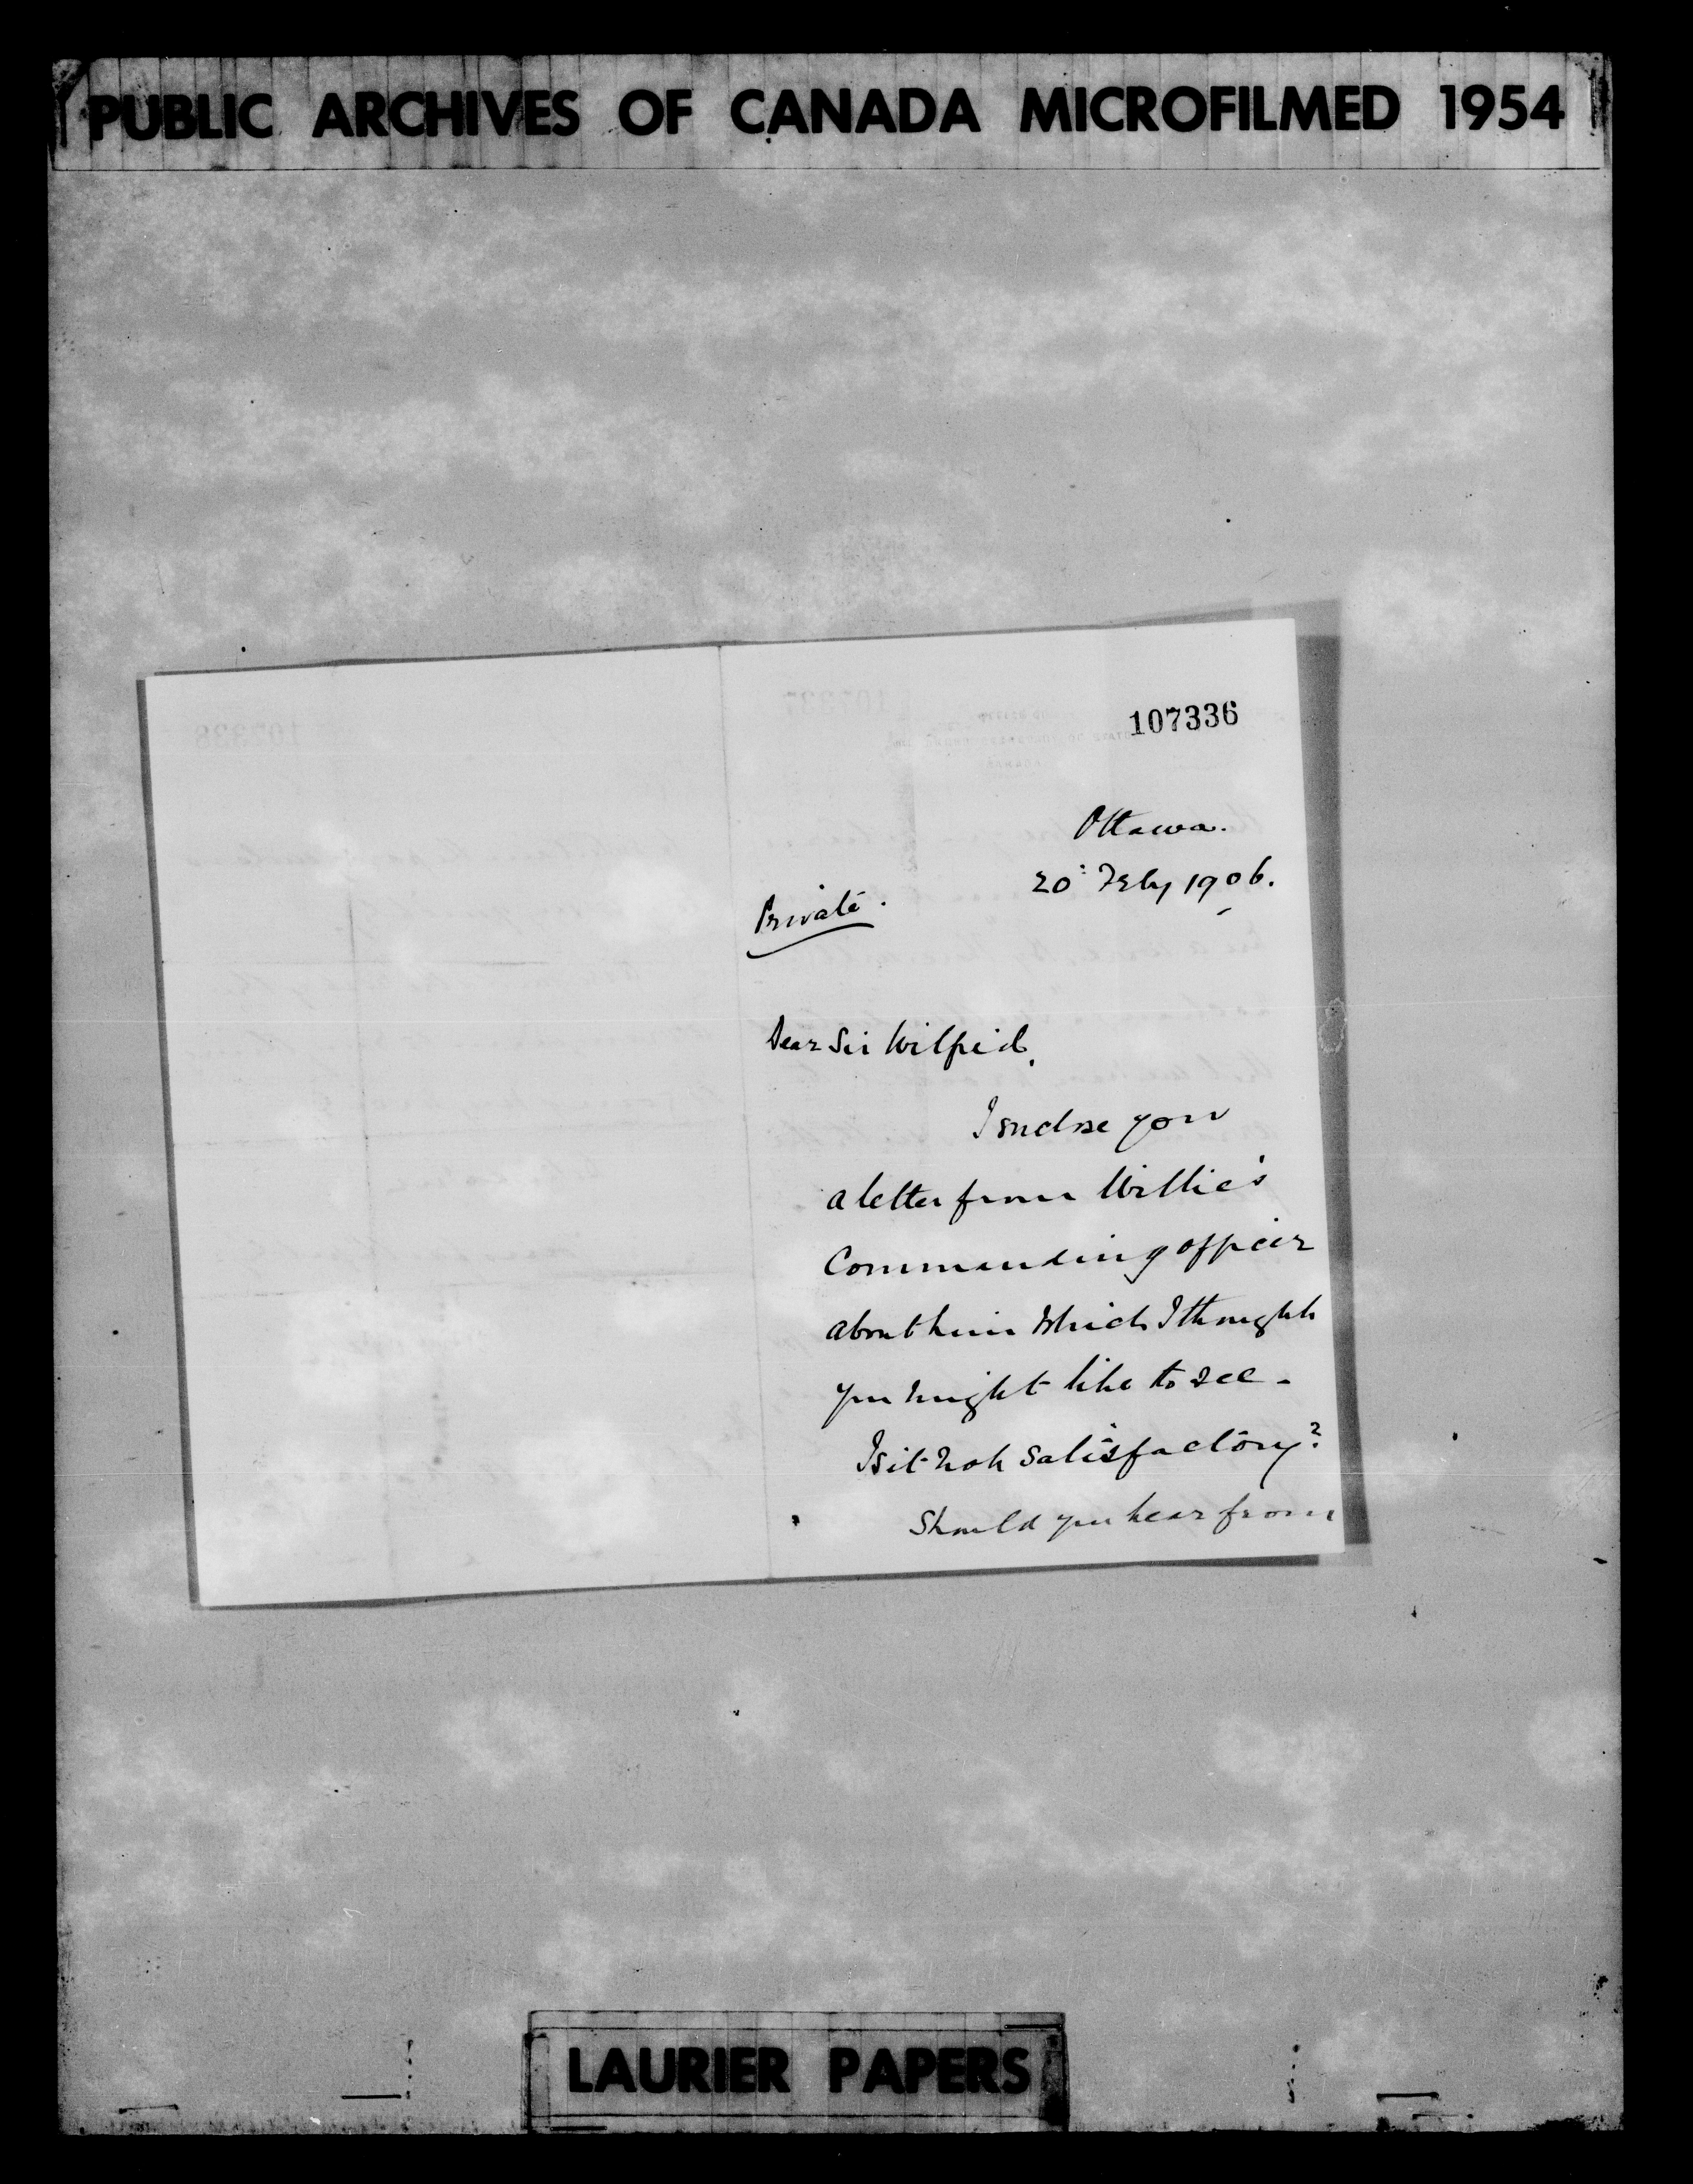 PUBLIC ARCHIVES OF CANADA MICROFILMED 1954
107336
Ottawa.
20: Feby 1906.
Private.
Dear Sir Wilfrid,
I enclose you
a letter from Willie's
Commanding officer
about him which I thought
you might like to see -
Is it not satisfactory?
Should you hear from
LAURIER PAPERS